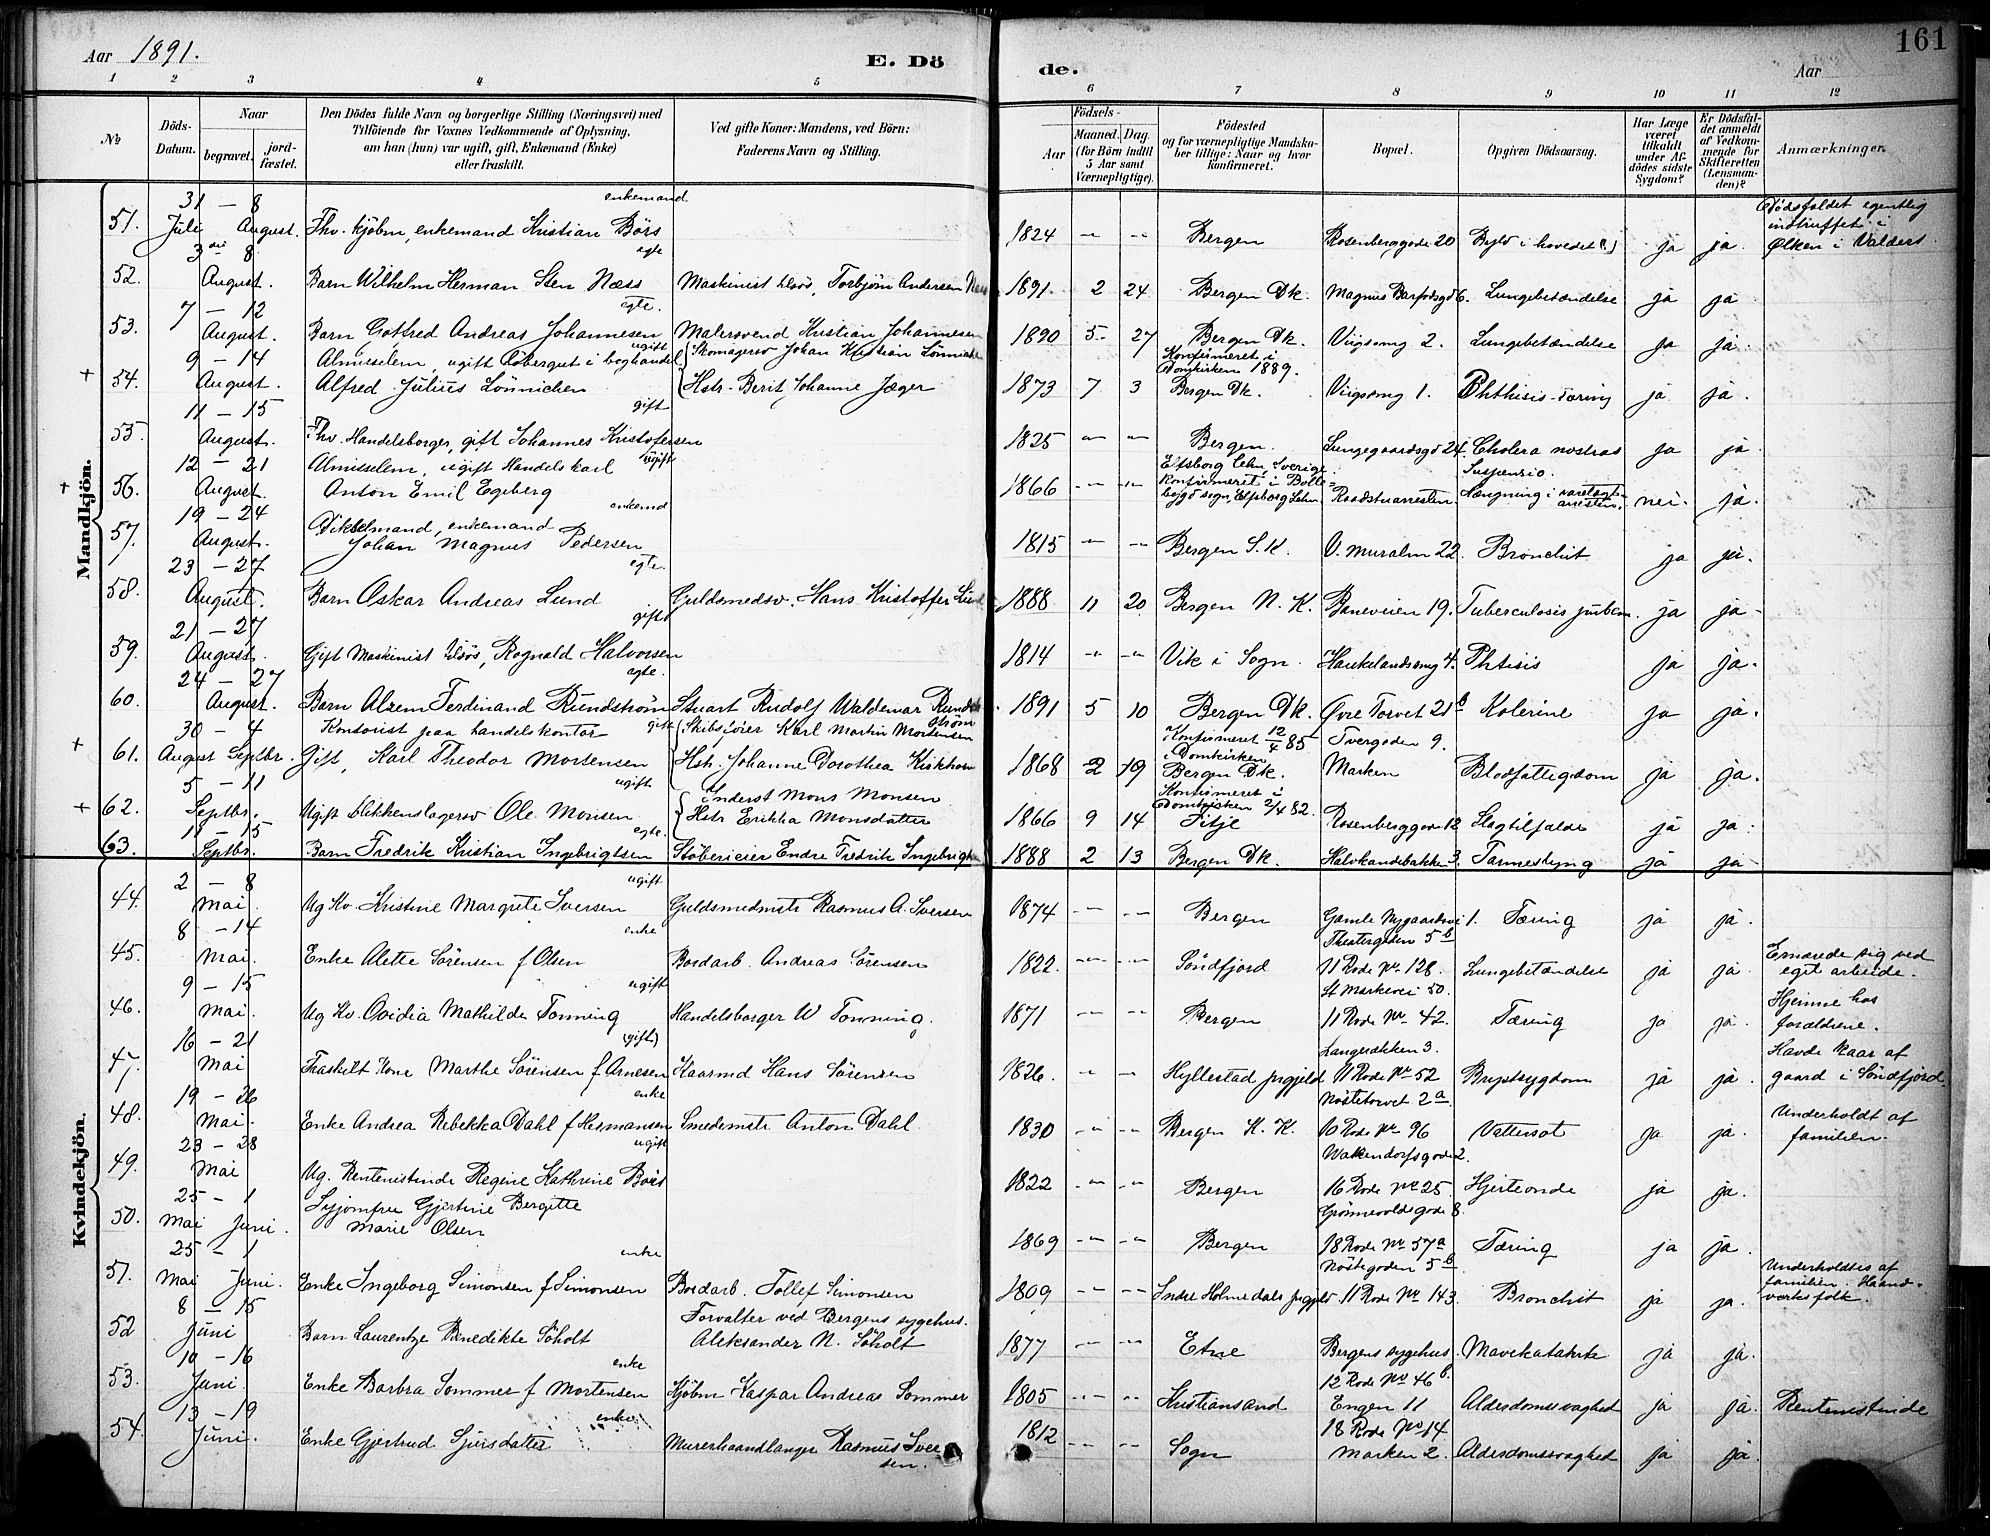 Aar 1891. E. Dö de. Aar 161
1 2 3 4 5 6 7 8 9 10 11 12
No Döds-Datum. Naar begravet. jord-fæstet. Den Dödes fulde Navn og borgerlige Stilling (Næringsvei) med Tilföiende for Voxnes Vedkommende af Oplysning, om han (hun) var ugift, gift, Enkemand (Enke) eller fraskilt. Ved gifte Koner: Mandens, ved Börn: Faderens Navn og Stilling. Födsels- Aar Maaned. Dag. (for Börn indtil 5 Aar samt Værnepligtige). Födested og for værnepligtige Mandskaber tillige: Naar og hvor konfirmeret. Bopæl. Opgiven Dödsaarsag. Har Læge været tilkaldt under Afdödes sidste Sygdom? Er Dödsfaldet anmeldt af Vedkommende for Skifteretten (Lensmanden)? Anmærkninger.
Mandkjön.
51. 31 Juli – 8 August. Fhv. kjöbm, enkemand Kristian Börs enkemand 1824 -"- -"- Bergen Rosenberggade 20 i hovedet ja ja Dödsfaldet egentlig indtruffet i Ölken i Valders
52. 3 – 8 August. Barn Wilhelm Herman Sten Næss egte Maskinist Torbjörn Andersen 1891. 2 24 Bergen Dk. Magnus Barfodsgd 6. Lungebetændelse ja ja
53. 7 – 12 August. Barn Gotfred Andreas Johannesen egte. Malersvend Kristian Johannesen 1890 5 27 Bergen Dk. Viigsmg 2. Lungebetændelse ja ja
+ 54. 9 – 14 August. Almisselem, ugift i boghandel Alfred Julius Lönnichen ugift Skomagersv Johan Kristian Hstr. Berit Johanne Jæger 1873 7 3 Konfirmeret i Domkirken 1889. Bergen Dk. Viigsmg 1. Phthisis-Tæring ja ja.
55. 11 – 15 August. Fhv. Handelsborger, gift Johannes Kristofersen gift 1825 -"- -"- Bergen. Lungegaardsgd 24. Cholera nostras ja ja
+ 56. 12 – 21 August. Almisselem, ugift Handelskarl Anton Emil Egeberg ugift 1866 -"- -"- Elfsborg Lehn, Sverige. Konfirmeret i Bollebygd sogn, Elfsborg Lehn. Raadstuarresten Suspensio. Hængning i arresten. nei. ja.
57. 19 – 24 August. enkemand Johan Magnus Pedersen enkemd 1815 -"- -"- Bergen S.K. Ö. muralm 22. Bronchit ja ja.
58. 23 – 27 August. Barn Oskar Andreas Lund egte. Guldsmedsv. Hans Kristoffer Lund 1888 11 20 Bergen N. K. Baneveien 19. Tuberculosis ja ja
59. 21 – 27 August. Gift Maskinist Rognald Halvorsen gift 1814 -"- -"- Vik i Sogn. Haukelandsmg 4. Phtisis ja ja.
60. 24 – 27 August. Barn Ferdinand Rundström egte. Stuart Rudolf Waldemar Rundström 1891 5 10 Bergen Dk. Övre Torvet 21b Kolerine ja ja.
+ 61. 30 – 4 August Septbr. Kontorist paa handelskontor Gift, Karl Theodor Mortensen gift Karl Martin Mortensen Hstr. Johanne Dorothea Kirkhorn 1868 2 19 Konfirmeret 12/4 85 i Domkirken Bergen Dk. Tvergaden 9. Marken Blodfattigdom ja ja.
+ 62. 5 – 11 Septbr. Ugift blikkenslagersv Ole Monsen ugift Inderst Mons Monsen Hstr Erikka Monsdatter 1866 9 14 Konfirmeret i Domkirken 2/4 82. Fitje Rosenberggade 12 Slagtilfælde ja ja.
63. 11 – 15 Septbr. Barn Fredrik Kristian Ingebrigtsen egte. Endre Fredrik 1888 2 13 Bergen Dk. Halvkandebakken 3. Tarmeslyng ja ja
Kvindekjön.
44. 2 – 8 mai. Ug Kv. Kristine Margrete Iversen ugift Guldsmedmstr Rasmus A. Iversen 1874 -"- -"- Bergen Gamle Nygaardsvei 1. Tæring ja ja.
45. 8 – 14 mai. Enke Alette Sörensen f Olsen enke Bordarb. Andreas Sörensen 1822. -"- -"- Söndfjord Theatergaden 5b 11 Rode No 128. Lungebetændelse ja ja. Ernærede sig ved eget arbeide.
46. 9 – 15 mai. Ug Kv. Ovidia Mathilde Tonning ugift Handelsborger W Tonning. 1871 -"- -"- Bergen St Markevei 50. 11 Rode No 42. Tæring ja ja. Hjemme hos forældrene.
47. 16 – 21 Mai Fraskilt Kone Marthe Sörensen f Arnesen (gift) Haarmd Hans Sörensen 1826. -"- -"- Hyllestad prgjeld Langerækken 3. 11 Rode No 52 Brystsygdom ja ja. Havde kaar af gaard i Söndfjord.
48. 19 – 26 Mai. Enke Andrea Rebekka Dahl f Hermansen enke Smedemstr Anton Dahl. 1830 -"- -"- Bergen K. K. Nöstetorvet 2a. 10 Rode No 96 Vattersot ja ja. Underholdt af familien.
49. 23 – 28 Mai Ug. Rentenistinde Regine Kathrine Börs ugift 1822 -"- -"- Bergen Walkendorfsgade 2. 16 Rode No 25 Hjerteonde ja ja.
50. 25 – 1 Mai Juni. Syjomfru Gjertine Bergitte Marie Olsen 1869 -"- -"- Bergen Grönnevoldsgade 8. 18 Rode No 57a Tæring ja ja.
51. 25 – 1 Mai Juni. Enke Ingeborg Simonsen f Simonsen enke Bordarb. Tollef Simonsen 1809 -"- -"- Indre Holmedals prgjeld Nöstegaden 5b 11 Rode No 143. Bronchit ja ja. Underholdtes af familien. Haandværksfolk.
52 8 – 15 Juni Barn Laurentze Benedikte Söholt Forvalter ved Bergens sygehus. Aleksander N. Söholt 1877 -"- -"- Etne Bergens sygehus. Mavekatarrh ja ja.
53. 10 – 16 Juni. Enke Barbra Sommer f Mortensen enke Kjöbm Kaspar Andreas Sommer 1805 -"- -"- Kristiansand 12 Rode No 46b. Engen 11 Alderdomssvaghed ja ja. Rentenistinde
54. 13 – 19 Juni. Enke Gjertrud Sjursdatter enke Murerhaandlanger Rasmus Iversen. 1812 -"- -"- Sogn 18 Rode No 14 Marken 2. Alderdomssvaghed ja ja.